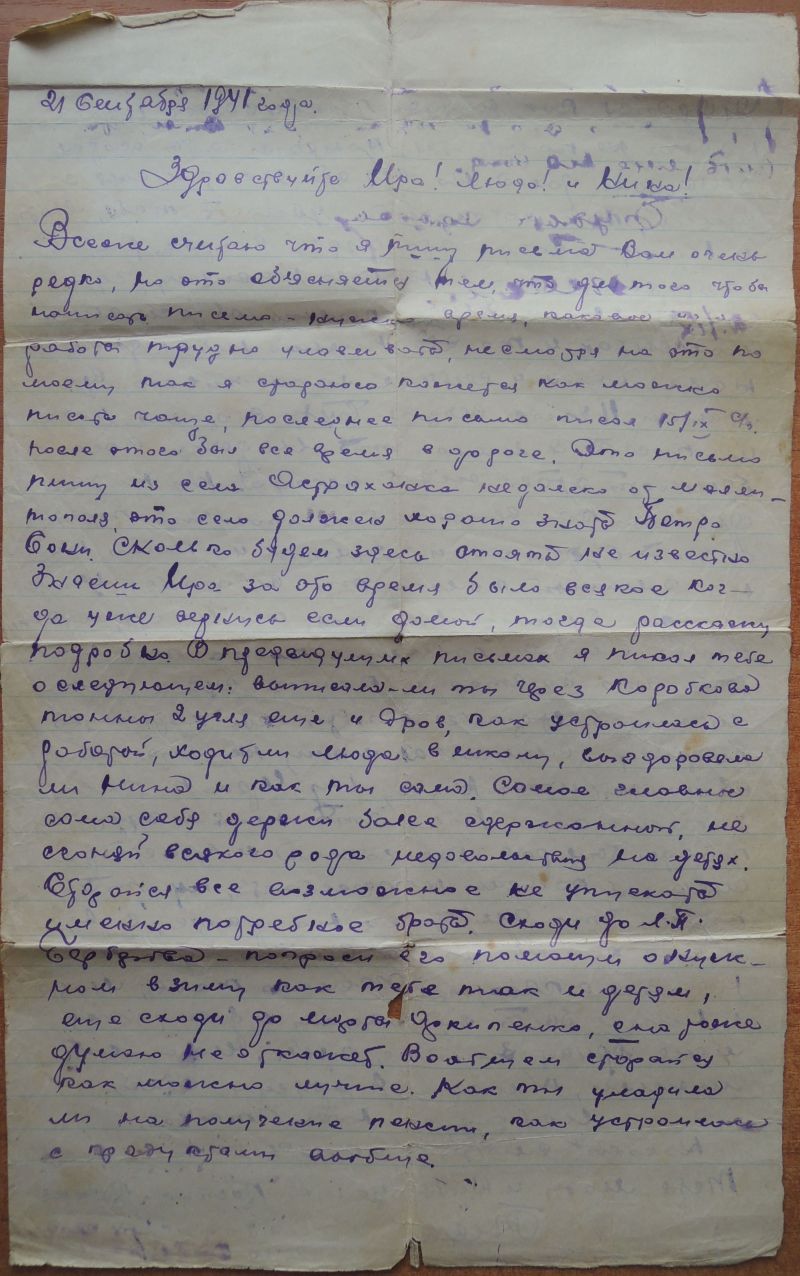 21 Сентября 1941 года.
Здравствуйте Ира! Люда! и Нина!
Все же считаю что я пишу письма Вам очень
редко, но это объясняется тем, что для того чтобы
написать письмо - нужно время, каковое
работы трудно улавливать, несмотря на это по
моему так я стараюсь кажется как можно
писать чаще, последнее письмо писал 15/IX с/г.
после этого был все время в дороге. Это письмо
пишу из села Астраханка недалеко от Мели-
тополя, это село должен хорошо знать Петро
Сколько будем здесь стоять не известно
Знаеш Ира за это время было всякое ког-
да уже вернусь если домой, тогда расскажу
подробно. В предыдущих письмах я писал тебе
о следующем: выписала-ли ты через Коробкова
тонны 2 угля еще и дров, как устроилась с
работой, ходит ли Люда в школу, выздоровела
ли Нина и как ты сама. Самое главное
сама себя держи более сдержанной, не
сгоняй всякого рода недовольствия на детях.
Старайся все возможное не упускать
умежно потребное брать. Сходи до Л.П.
попроси его помощи о нуж-
ном в зиму как тебе так и детям,
еще сходи до Марты она тоже
думаю не откажет. Вообщем старайся
как можно лучше. Как ты уладила
ли на получение пенсии, как устроилась
с продуктами вообще.